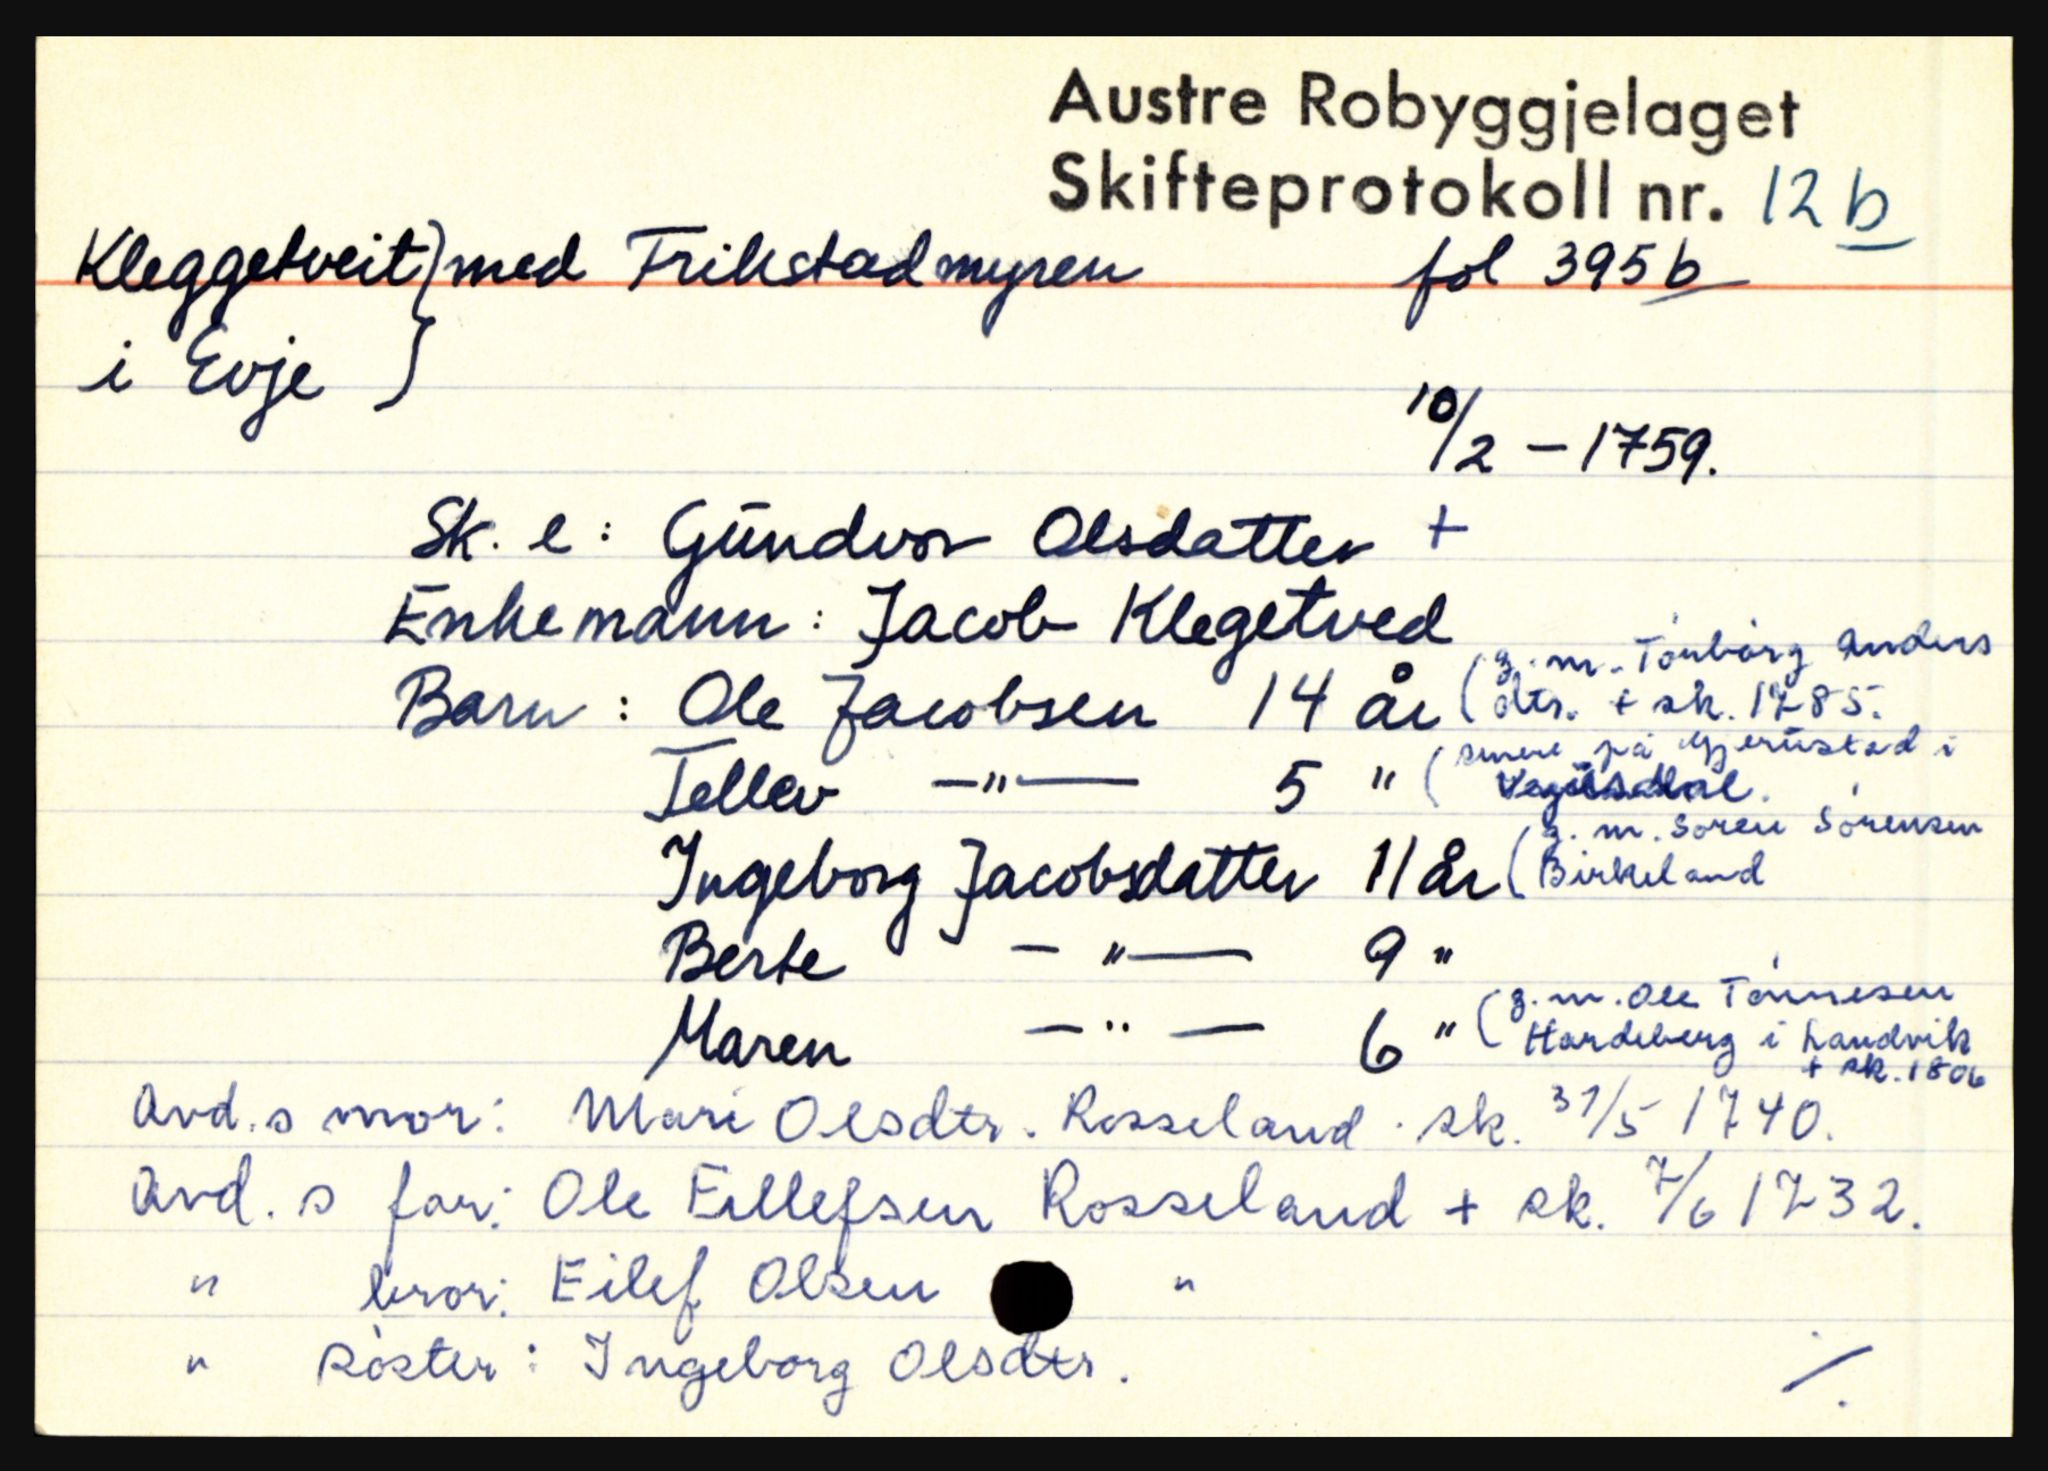 Austre Robyggjelaget
Skifteprotokoll nr. 12b
Kleggetveit } med Frikstadmyren fol 395b
i Evje }
10/2 - 1759.
Sk. e: Gündvor Olsdatter +
Enkemann: Jacob Klegetved
Barn: Ole Jacobsen 14 år (g.m. Tónbórg Anders
dtr. + sk. 1785.
Tellev -"- 5 " (senere på Gjerüstad i
Vegüsdal.
Ingeborg Jacobsdatter 11 år (g.m. Sóren Sórensen
Birkeland
Berte -"- 9 "
Maren -"- 6 " (g.m. Ole Tónnesen
Hardeberg i Landvik
+ sk. 1806
Avd.s mor: Mari Olsdtr. Rosseland. sk. 31/5 1740.
Avd.s far: Ole Eillefsen Rosseland + sk. 7/6 1732.
" bror: Eilef Olsen "
" sóster: Ingeborg Olsdtr.
./.